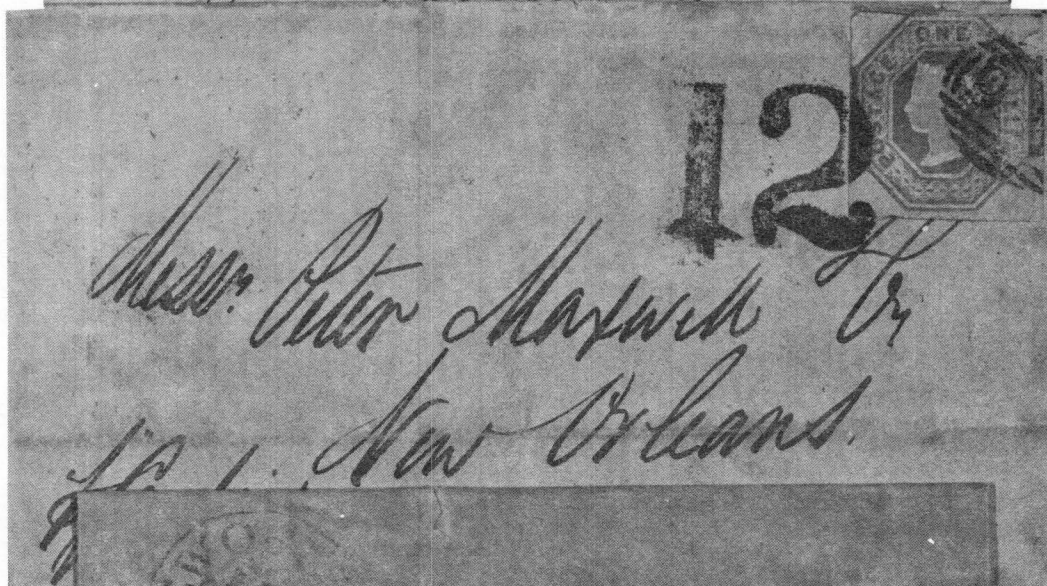 POSTAGE ONE
12
Messrs. Peter Maxwell &
New Orleans.